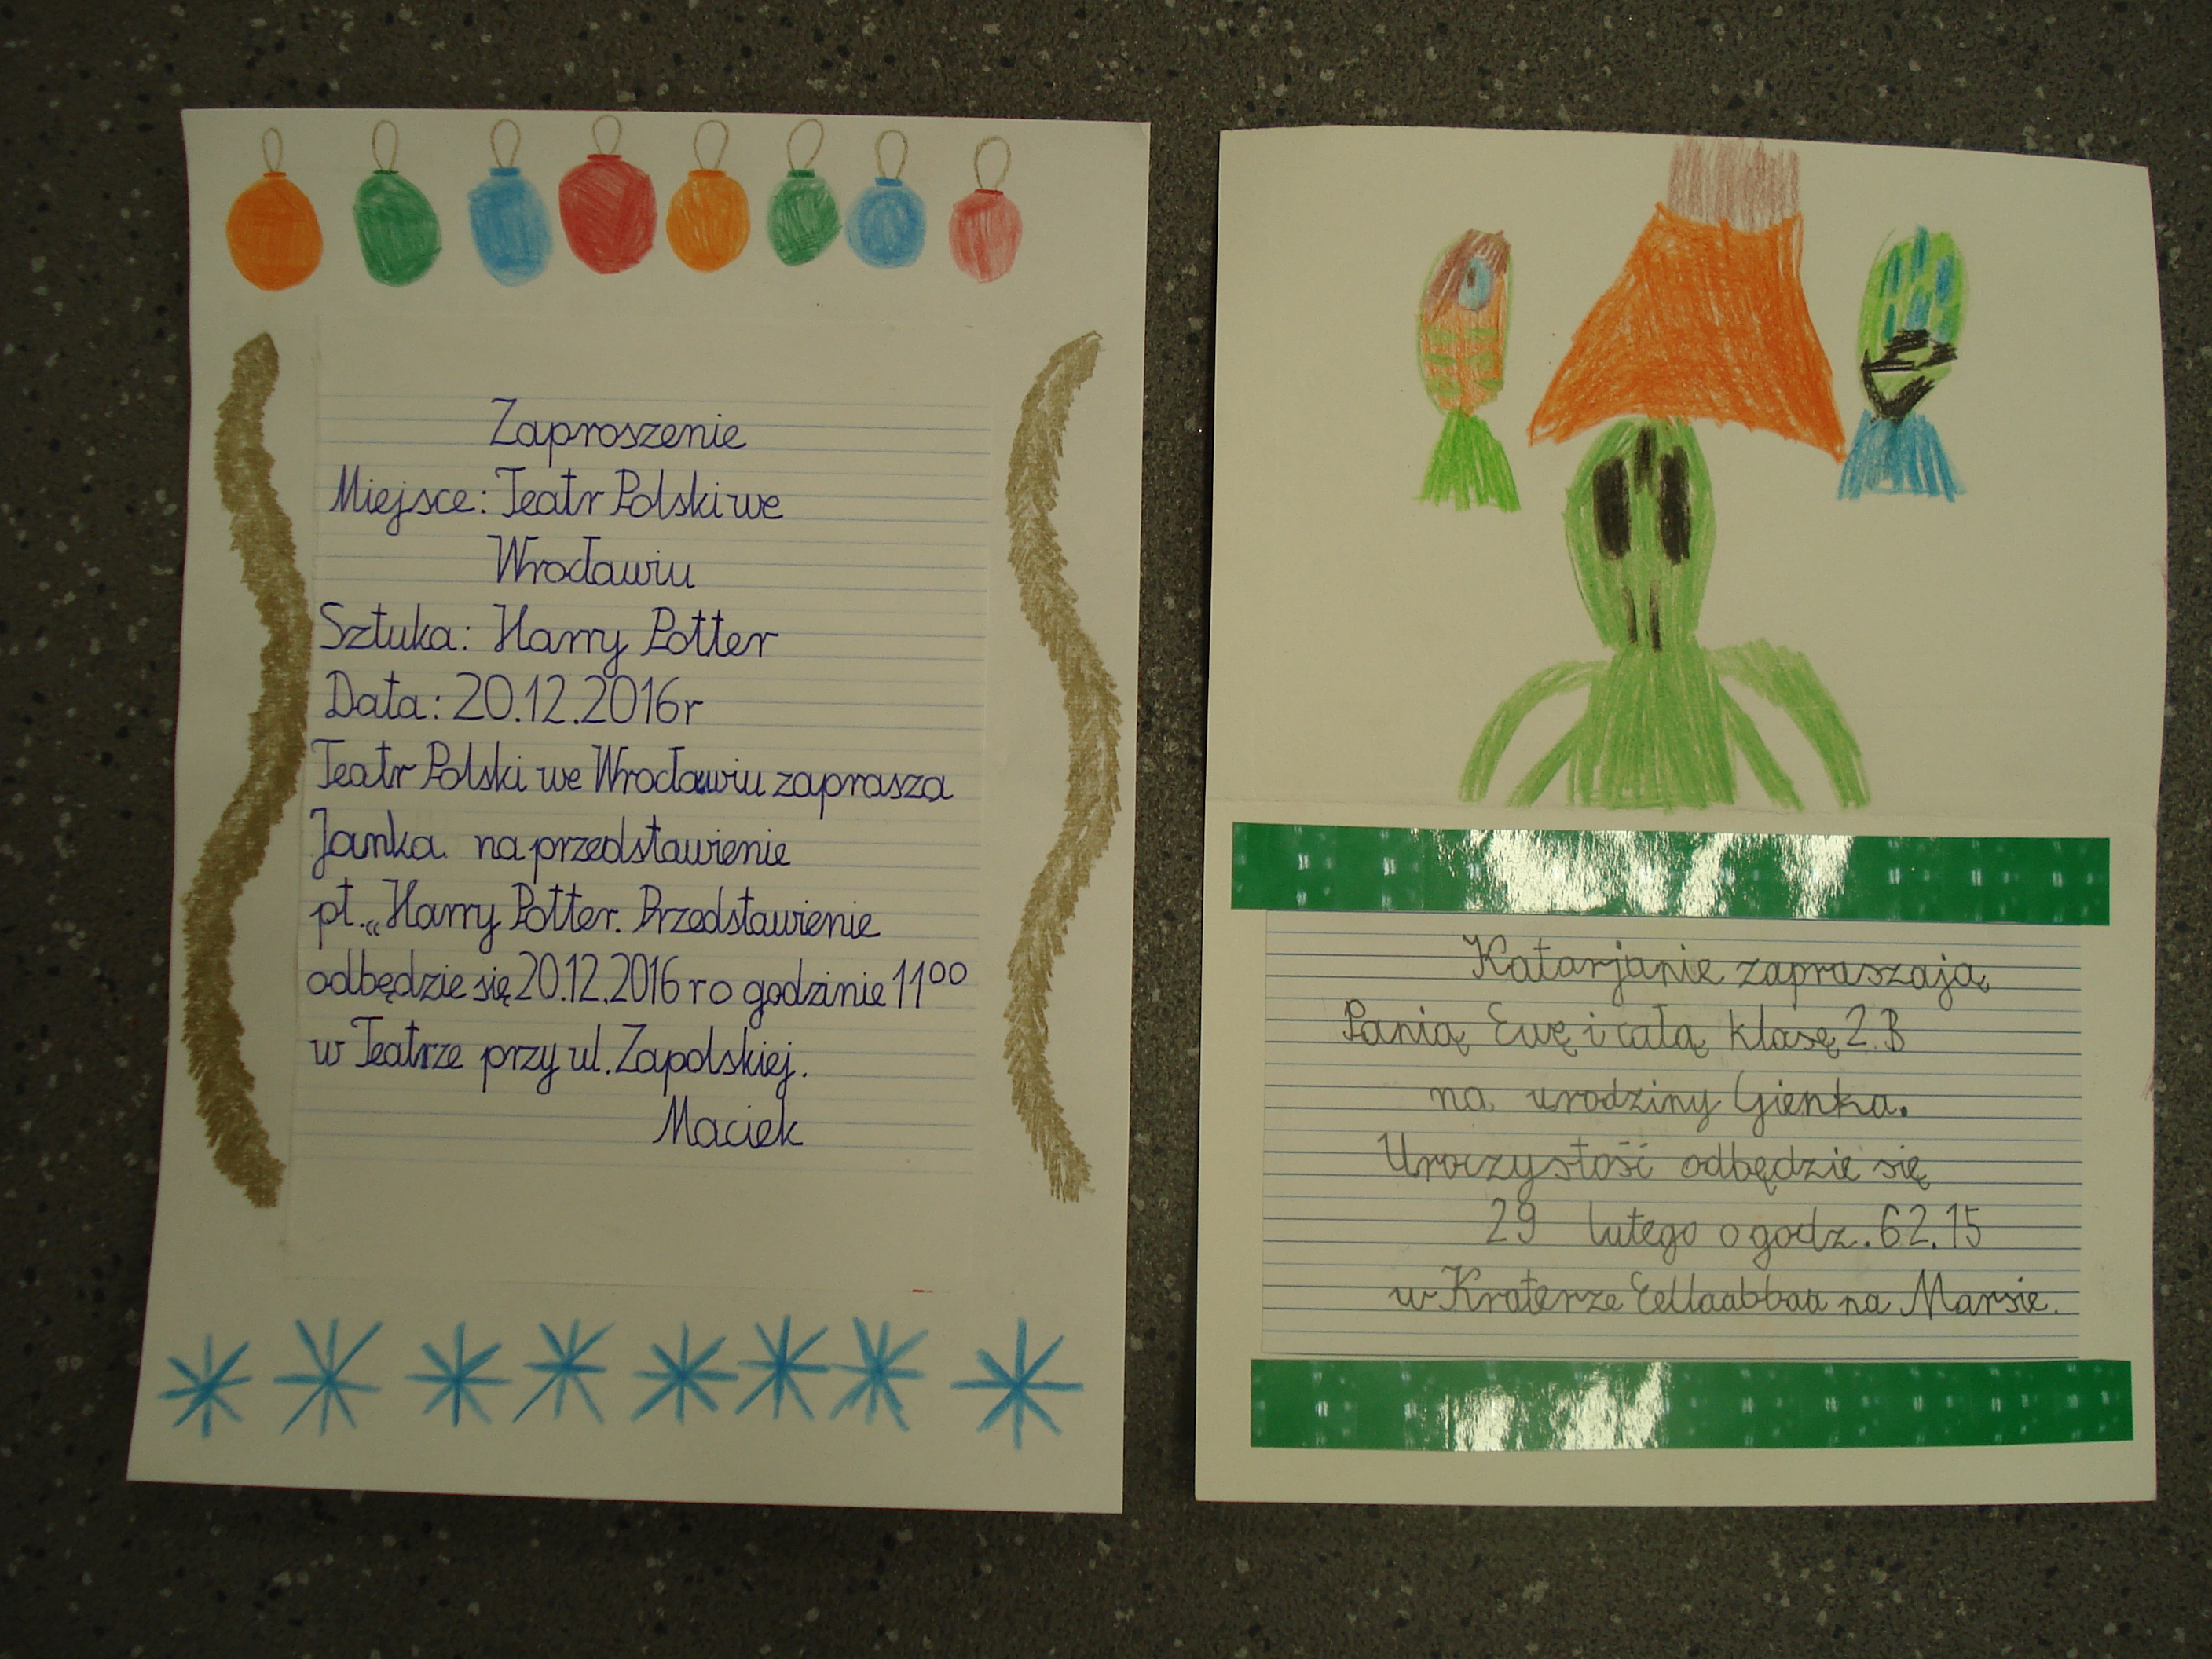 Zaproszenie
Miejsce: Teatr Polski we
Wrocławiu
Sztuka: Harry Potter
Data: 20.12.2016r
Teatr Polski we Wrocławiu zaprasza
Janka na przedstawienie
pt. „Harry Potter. Przedstawienie
odbędzie się 20.12.2016 r o godzinie 11⁰⁰
w Teatrze przy ul. Zapolskiej.
Maciek
Katarjanie zapraszają
Panią Ewę i całą klasę 2.B
na urodziny Gienka.
Uroczystość odbędzie się
29 lutego o godz. 62.15
w Kraterze Eellaabbaa na Marsie.